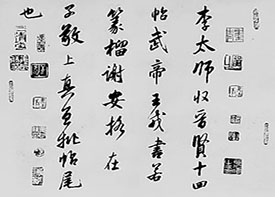 李太师收晋贤十四
帖武帝王戎書若
篆籀谢安格在
子敬上真宜批帖尾
也